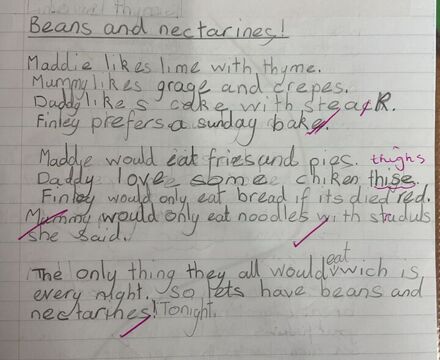 Beans and nectarines!
Maddie likes lime with thyme.
Mummy likes grage and crepes.
Daddy likes cake with steak.
Finley prefers a sunday bake.
Maddie would eat fries and pies. thighs
Daddy love some chiken thise.
Finley would only eat bread if its died red.
Mummy would only eat noodles with studuls
she said.
eat
The only thing they all would wich is
every night. So lets have beans and
nectarines! Tonight.